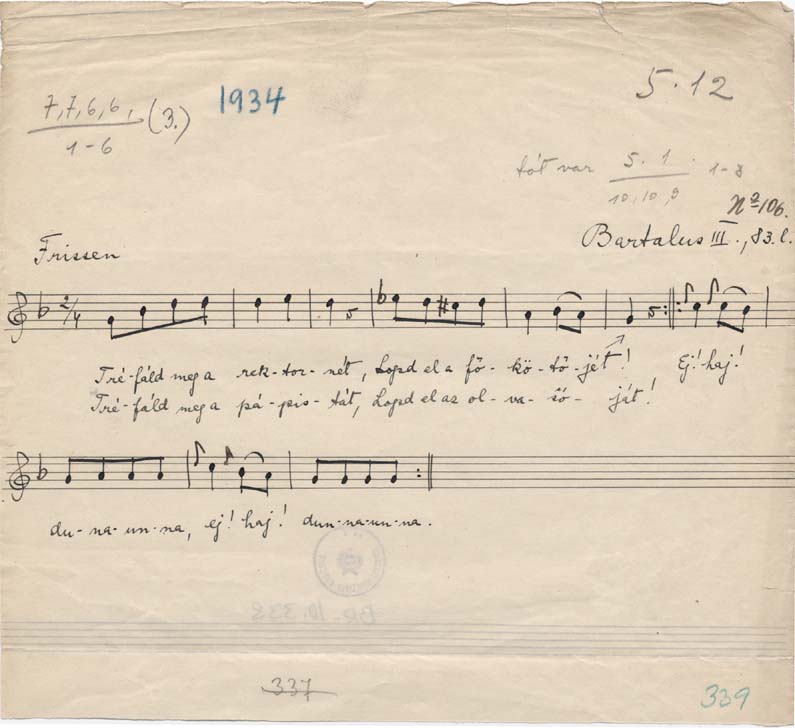 7,7,6,6, (3.)
1-6
1934
5.12
tót var 5.1. 1-8
10,10,9
No 106.
Bartalus III., 83. l.
Frissen
2/4
Tré-fáld meg a rek-tor-nét, Lopd el a fő-kö-tő-jét! Ej! haj!
Tré-fáld meg a pá-pis-tát, Lopd el az ol-va-só-ját!
du-na-un-na, ej! haj! dun-na-un-na.
337
339